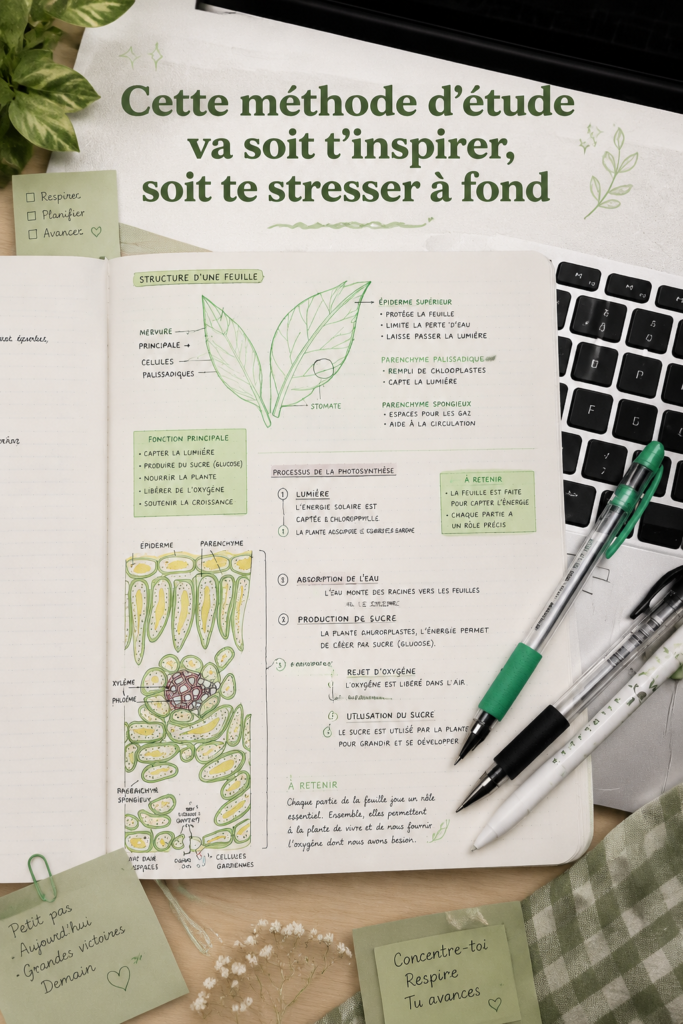 Cette méthode d'étude
va soit t'inspirer,
soit te stresser à fond
Respirez
Planifier
Avancez
STRUCTURE D'UNE FEUILLE
MERVURE
PRINCIPALE
CELULES
PALISSADIQUES
STOMATE
ÉPIDERME SUPÉRIEUR
• PROTÉGE LA FEUILLE
• LIMITE LA PERTE D'EAU
• LAISSE PASSER LA LUMIÈRE
PARENCHYME PALISSADIQUE
• REMPLI DE CHLOOPLASTES
• CAPTE LA LUMIÈRE
PARENCHYME SPONGIEUX
• ESPACES POUR LES GAZ
• AIDE À LA CIRCULATION
FONCTION PRINCIPALE
• CAPTER LA LUMIIÈRE
• PRODUIRE DU SUCRE (GLUCOSE)
• NOURRIR LA PLANTE
• LIBÉRER DE L'OXYGÈNE
• SOUTENIR LA CROISSANCE
PROCESSUS DE LA PHOTOSYNTHÈSE
1 LUMIÈRE
L'ÉNERGIE SOLAIRE EST
CAPTÉE
LA PLANTE
À RETENIR
• LA FEUILLE EST FAITE
POUR CAPTER L'ÉNERGIE
• CHAQUE PARTIE A
UN RÔLE PRÉCIS
ÉPIDERME PARENCHYME
ABSORPTION DE L'EAU
L'EAU MONTE DES RACINES VERS LES FEUILLES
2 PRODUCTION DE SUCRE
LA PLANTE CHLUROPLASTES, L'ÉNERGIE PERMET
DE CÉER PAR SUCRE (GLUOOSE).
REJET D'OXYGÈNE
L'OXYGÈNE EST LIBÉRÉ DANS L'AIR
UTLUSATION DU SUCRE
LE SUCRE EST UTLISÉ PAR LA PLANTE
POUR GRANDIR ET SE DÉVELOPPER
XYLÈME
PHLOÈME
SPONGIEUX
CELLULES
GARDIENNES
À RETENIR
Chaque partie de la feuille joue un rôle
essentiel. Ensemble, elles permettent
à la plante de vivre et de nous fournir
l'oxygène dont nous avons besoin.
Petit pas
• Aujourd'hui
• Grandes victoires
Demain
Concentre-toi
Respire
Tu avances